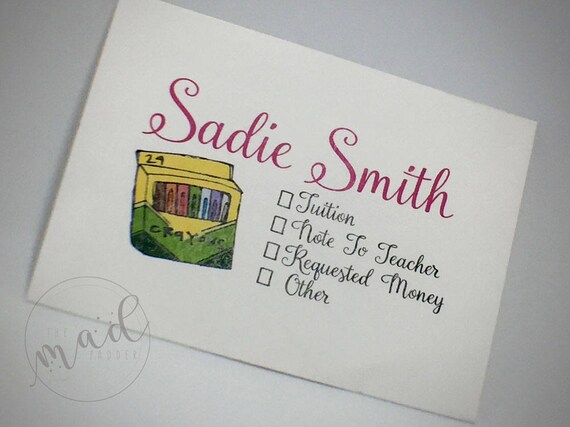 Sadie Smith
24
CRAYONS
Tuition
Note To Teacher
Requested Money
Other
THE
mad